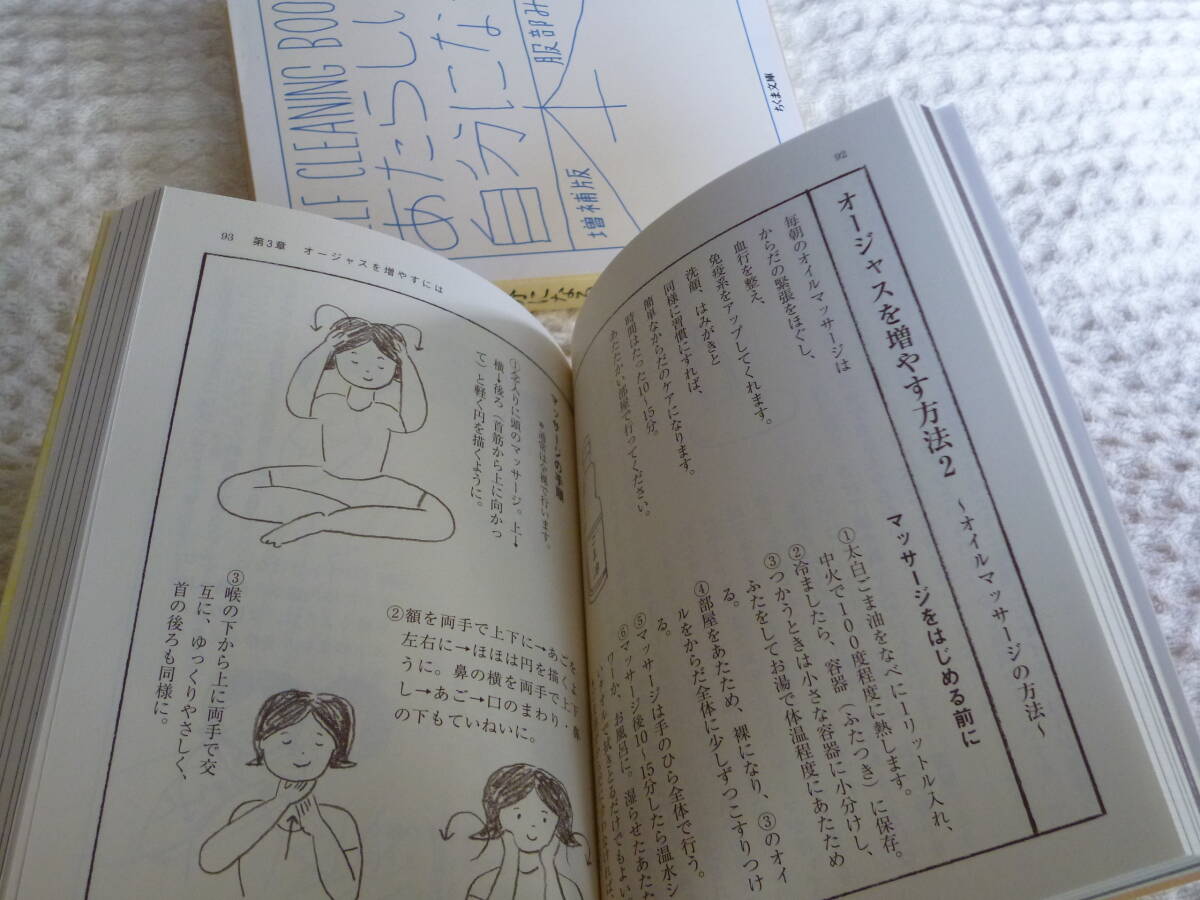 SELF CLEANING BOO
あたらしい
自分にな
本
服部み
増補版
ちくま文庫
になる
92
オージャスを増やす方法2
～オイルマッサージの方法～
毎朝のオイルマッサージは
からだの緊張をほぐし、
血行を整え、
免疫系をアップしてくれます。
洗顔、はみがきと
同様に習慣にすれば、
簡単なからだのケアになります。
時間はたった10～15分。
あたたかい部屋で行ってください。
マッサージをはじめる前に
①太白ごま油をなべに一リットル入れ、
中火で100度程度に熱します。
②冷ましたら、容器（ふたつき）に保存。
③つかうときは小さな容器に小分けし、
ふたをしてお湯で体温程度にあたため
る。
④部屋をあたため、裸になり、③のオイ
ルをからだ全体に少しずつこすりつけ
る。
⑤マッサージは手のひら全体で行う。
⑥マッサージ後10～15分したら温水シ
ャワーか、お風呂に。湿らせたあたた
いタオルで拭きとるだけでもよい
93 第3章 オージャスを増やすには
マッサージの手順
＊通常は全裸で行います。
①念入りに頭のマッサージ。上→
横→後ろ（首筋から上に向かっ
て）と軽く円を描くように。
②額を両手で上下に→あごを
左右に→ほほは円を描くよ
うに。鼻の横を両手で上下
し→あご→口のまわり・鼻
の下もていねいに。
③喉の下から上に両手で交
互に、ゆっくりやさしく、
首の後ろも同様に。